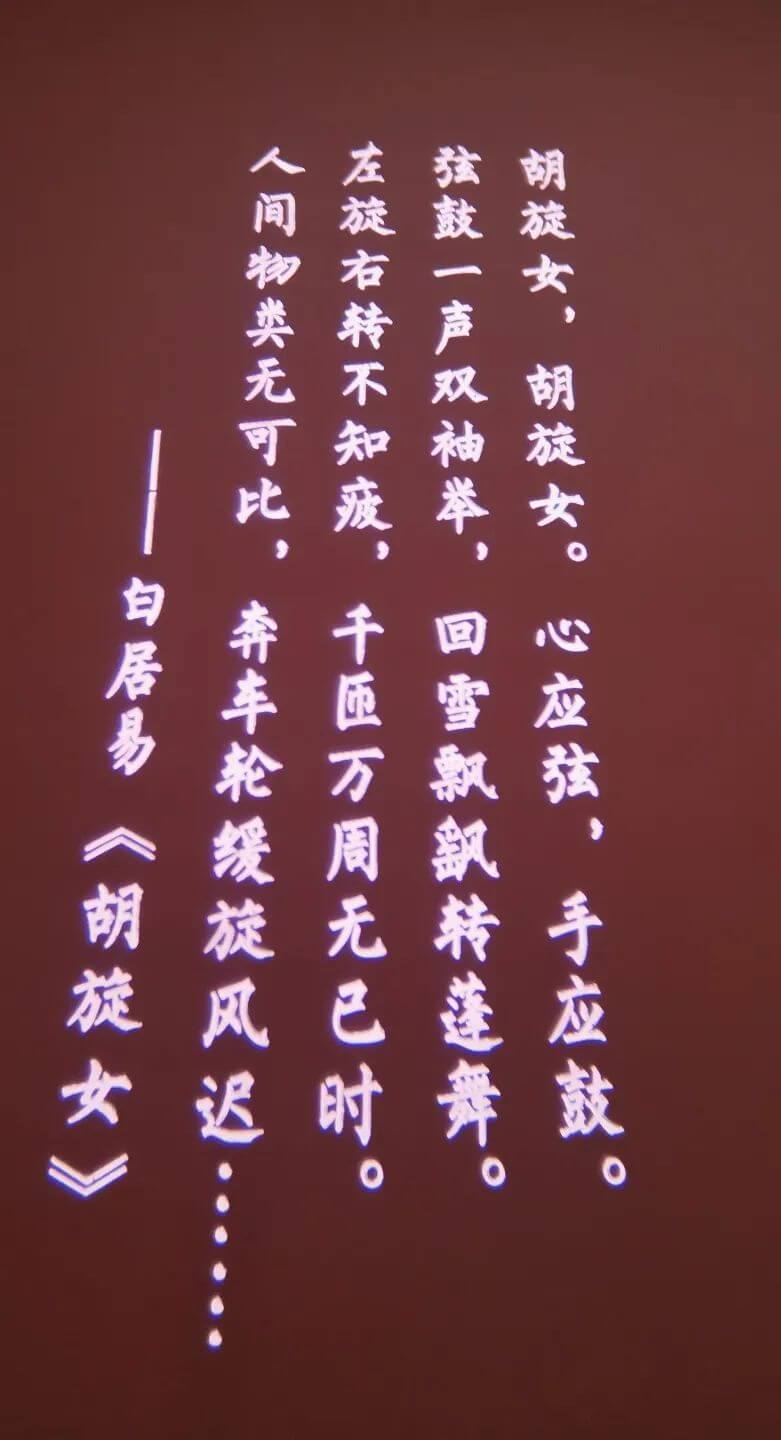 胡旋女，胡旋女。心应弦，手应鼓。
弦鼓一声双袖举，回雪飘飖转蓬舞。
左旋右转不知疲，千匝万周无已时。
人间物类无可比，奔车轮缓旋风迟……
——白居易《胡旋女》